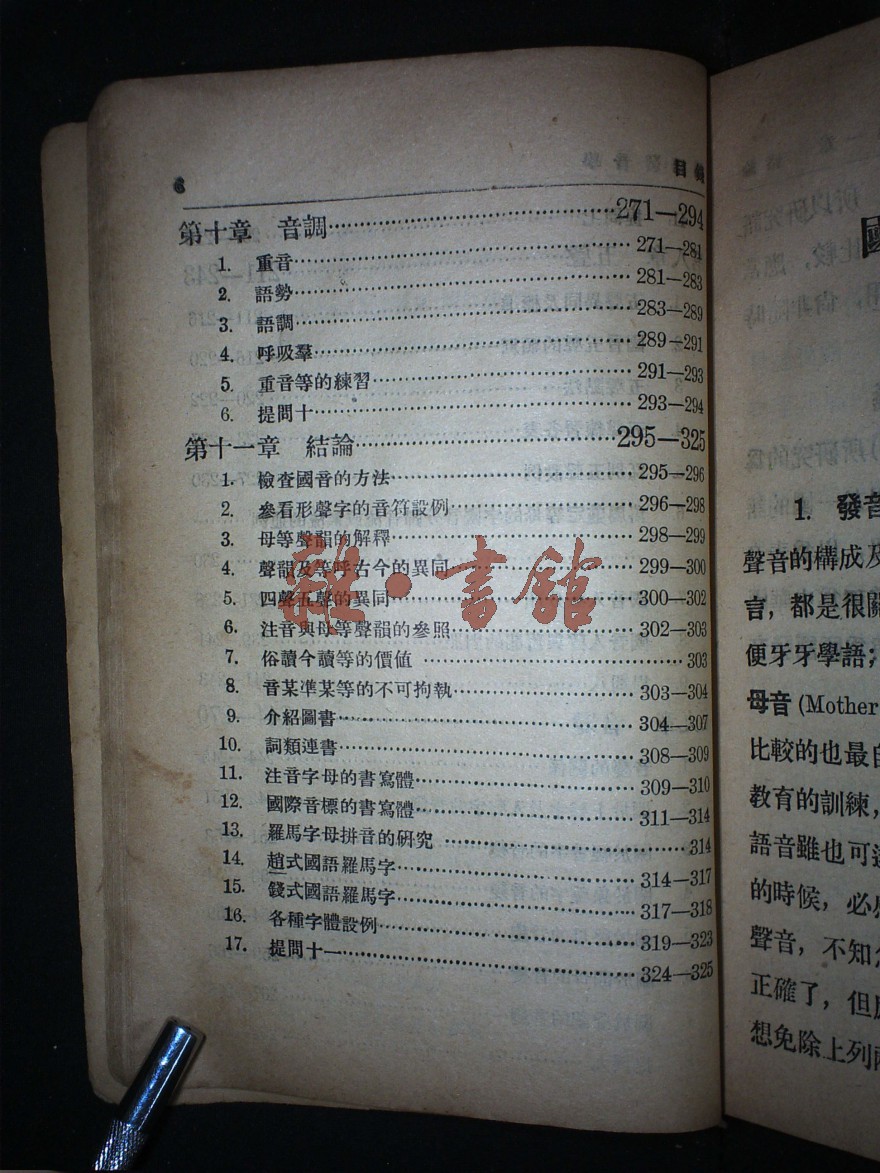 6
目錄
第十章 音調……271—294
1. 重音……271—281
2. 語勢……281—283
3. 語調……283—289
4. 呼吸羣……289—291
5. 重音等的練習……291—293
6. 提問十……293—294
第十一章 結論……295—325
1. 檢查國音的方法……295—296
2. 參看形聲字的音符設例……296—298
3. 母等聲韻的解釋……298—299
4. 聲韻及等呼古今的異同……299—300
5. 四聲五聲的異同……300—302
6. 注音與母等聲韻的參照……302—303
7. 俗讀今讀等的價值……303
8. 音某準某等的不可拘執……303—304
9. 介紹圖書……304—307
10. 詞類連書……308—309
11. 注音字母的書寫體……309—310
12. 國際音標的書寫體……311—314
13. 羅馬字母拼音的研究……314
14. 趙式國語羅馬字……314—317
15. 錢式國語羅馬字……317—318
16. 各種字體設例……319—323
17. 提問十一……324—325
雜·書館
國
1. 發音
聲音的構成及
言，都是很關
便牙牙學語；
母音 (Mother
比較的也最自
教育的訓練，
語音雖也可達
的時候，必
聲音，不知
正確了，但
想免除上列兩